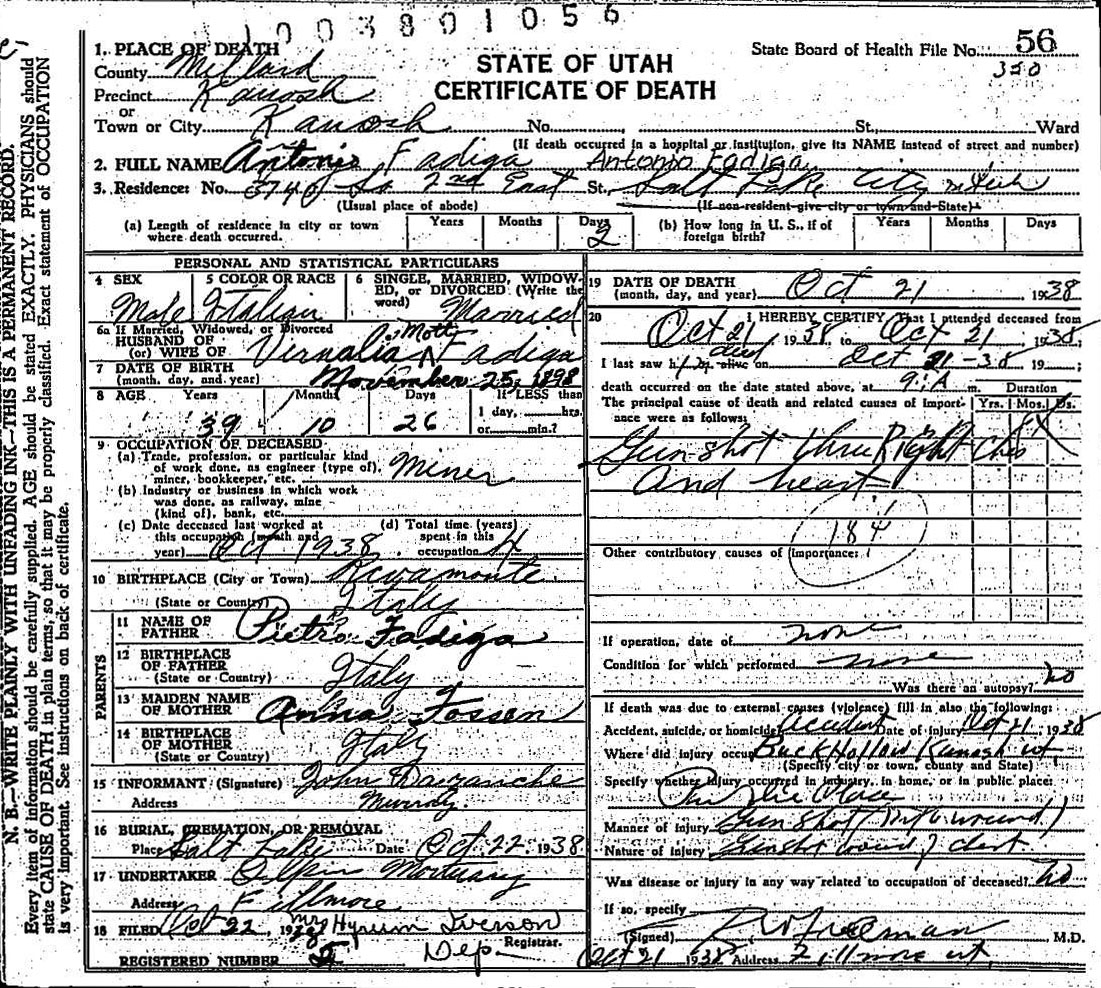 1003801056
1. PLACE OF DEATH
County Millard
Precinct Kanosh
or
Town or City Kanosh No. St. Ward
STATE OF UTAH
CERTIFICATE OF DEATH
State Board of Health File No. 56
350
(If death occurred in a hospital or institution, give its NAME instead of street and number)
2. FULL NAME Antonio Fadiga Antonio Fadiga
3. Residence: No. 3740 So 2nd East St. Salt Lake City Utah
(Usual place of abode) (If non-resident give city or town and State)
(a) Length of residence in city or town where death occurred. Years Months Days 2
(b) How long in U. S., if of foreign birth? Years Months Days
PERSONAL AND STATISTICAL PARTICULARS
4 SEX Male
5 COLOR OR RACE Italian
6 SINGLE, MARRIED, WIDOWED, OR DIVORCED (Write the word) Married
6a If Married, Widowed, or Divorced
HUSBAND OF
(or) WIFE OF Fadiga
7 DATE OF BIRTH
(month, day, and year) November 25, 1898
8 AGE Years Months Days If LESS than
39 10 26 1 day, hrs.
or min.?
9 OCCUPATION OF DECEASED
(a) Trade, profession, or particular kind
of work done, as engineer (type of),
miner, bookkeeper, etc. Miner
(b) Industry or business in which work
was done, as railway, mine
(kind of), bank, etc.
(c) Date deceased last worked at
this occupation (month and
year) Oct 1938
(d) Total time (years)
spent in this
occupation 4
10 BIRTHPLACE (City or Town)
(State or Country) Italy
PARENTS
11 NAME OF
FATHER Pietro Fadiga
12 BIRTHPLACE
OF FATHER
(State or Country) Italy
13 MAIDEN NAME
OF MOTHER Anna
14 BIRTHPLACE
OF MOTHER
(State or Country) Italy
15 INFORMANT (Signature) John
Address Murray
16 BURIAL, CREMATION, OR REMOVAL
Place Salt Lake Date Oct. 22, 1938
17 UNDERTAKER Mortuary
Address Fillmore
18 FILED Oct 22, 1938 Mrs Hyrum Iverson
Dep. Registrar.
REGISTERED NUMBER 5
19 DATE OF DEATH
(month, day, and year) Oct 21 1938
20 I HEREBY CERTIFY, That I attended deceased from
Oct 21 1938 to Oct 21, 1938
I last saw h alive on dead Oct 21-38 19 ;
death occurred on the date stated above, at 9:A m.
The principal cause of death and related causes of importance were as follows: Duration
Yrs. Mos. Ds.
Gunshot thru Right
And heart
184
Other contributory causes of importance:
If operation, date of none
Condition for which performed none
Was there an autopsy? no
If death was due to external causes (violence) fill in also the following:
Accident, suicide, or homicide? Accident Date of injury Oct 21, 1938
Where did injury occur? Buck Hollow Kanosh ut
(Specify city or town, county and State)
Specify whether injury occurred in industry, in home, or in public place:
Public Place
Manner of injury Gun shot
Nature of injury Gunshot wound chest
Was disease or injury in any way related to occupation of deceased? No
If so, specify
(Signed) Freeman M.D.
Oct 21 1938 Address Fillmore ut
N. B.—WRITE PLAINLY WITH UNFADING INK—THIS IS A PERMANENT RECORD.
Every item of information should be carefully supplied. AGE should be stated EXACTLY. PHYSICIANS should
state CAUSE OF DEATH in plain terms, so that it may be properly classified. Exact statement of OCCUPATION
is very important. See instructions on back of certificate.